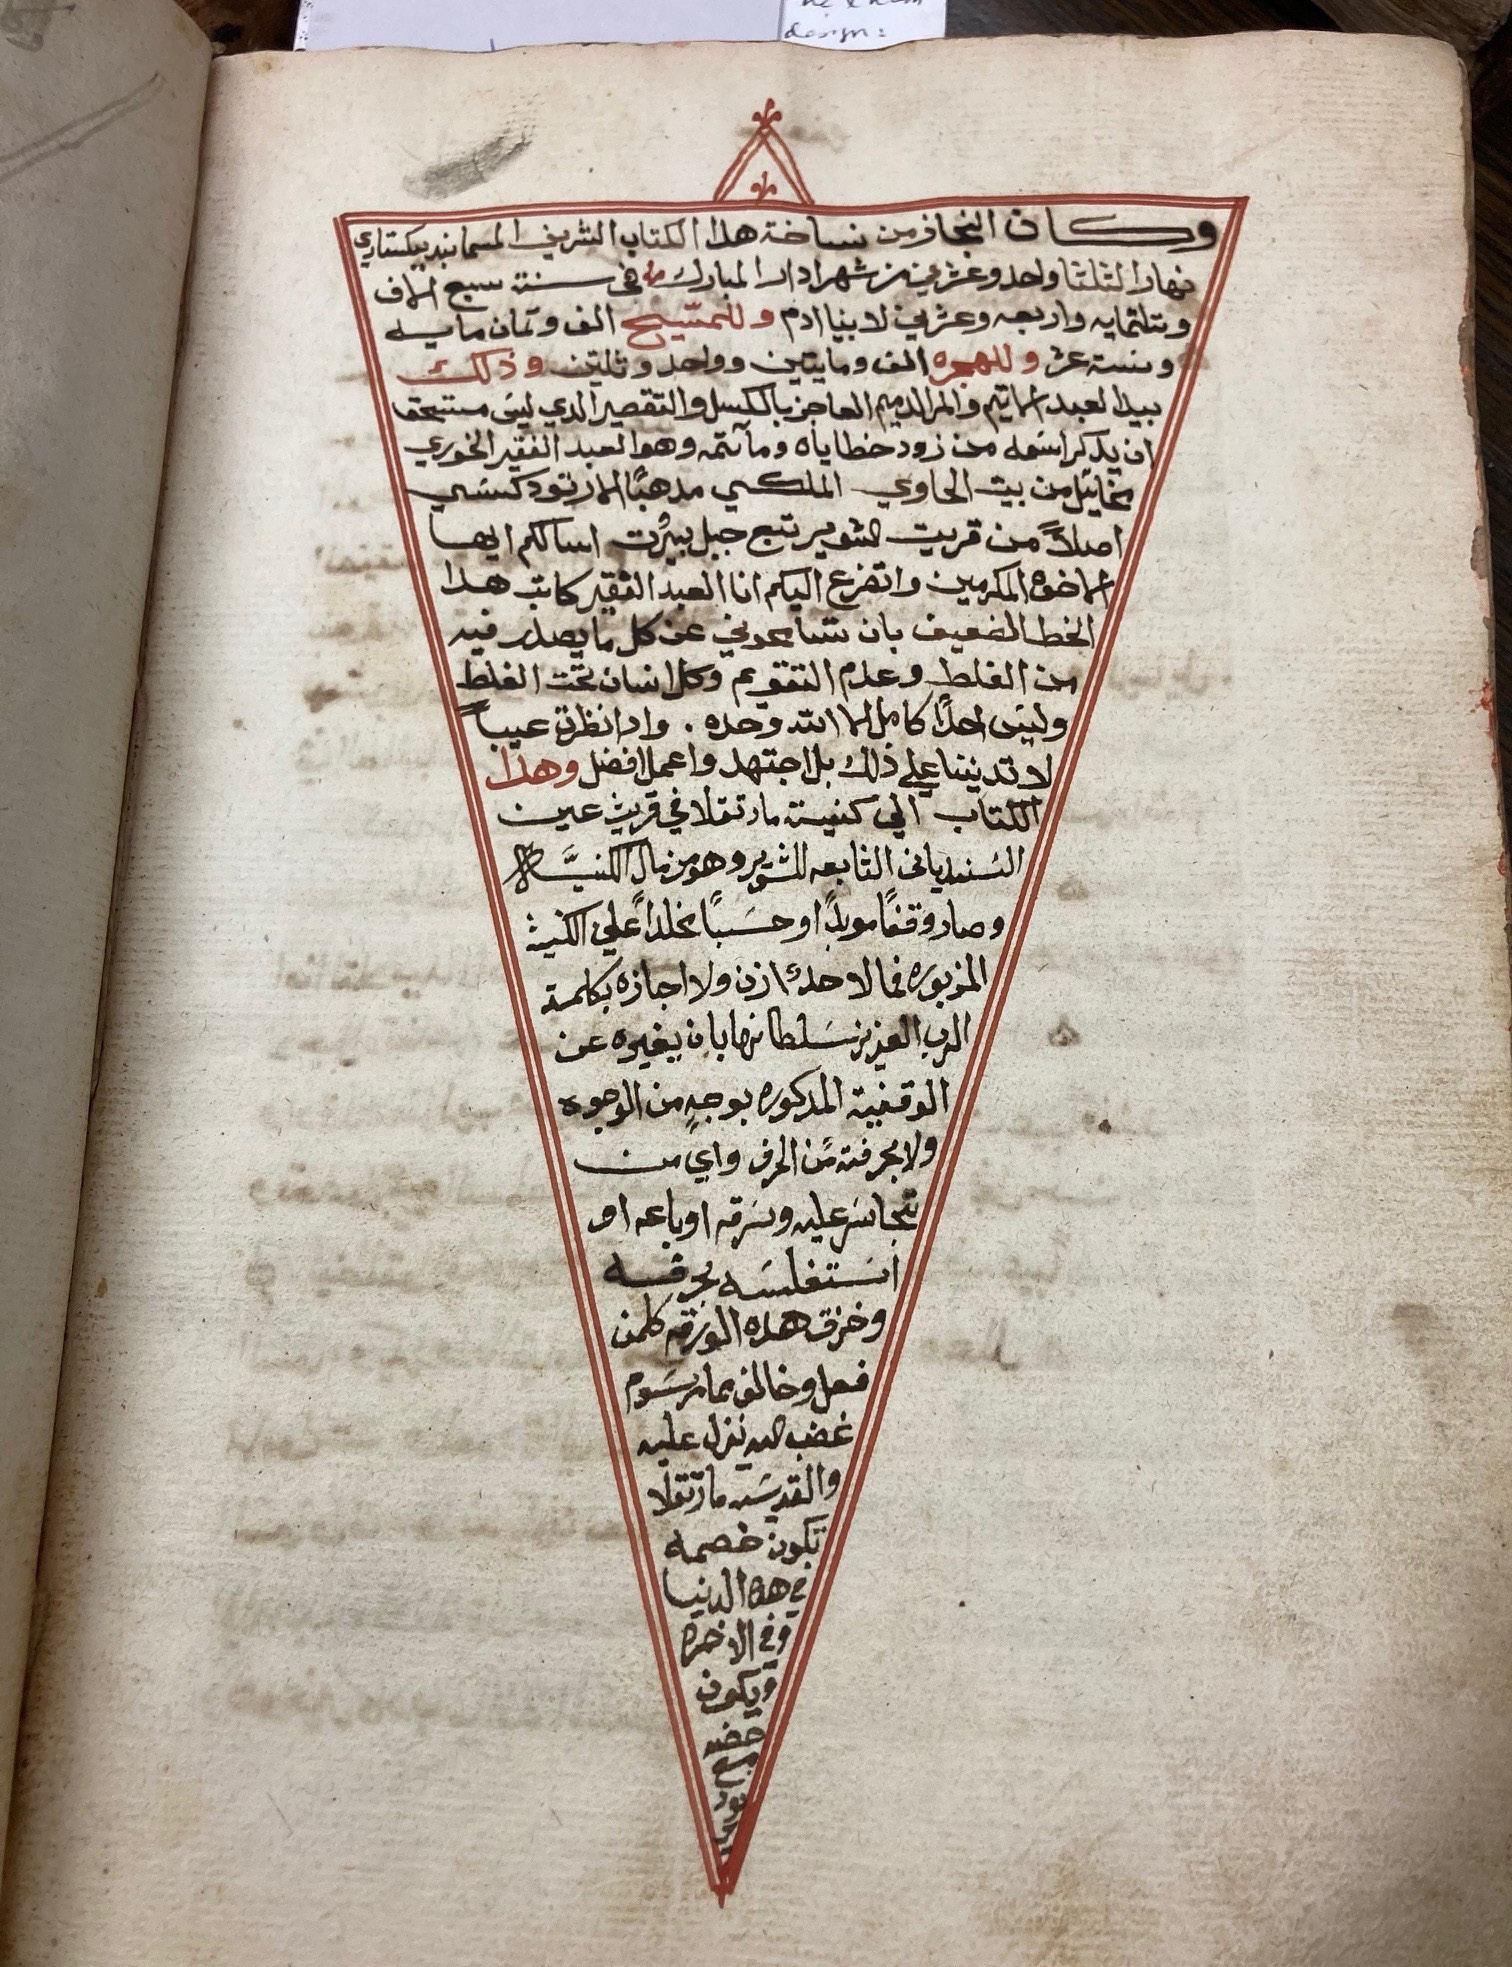 design:
وكان النجاز من نساخة هدا الكتاب الشريف المسما بنديكستاري
نهار التلتا واحد وعشرين من شهر ادار المبارك في سنة سبع الاف
وتلتمايه واربعه وعشرين لابينا ادم وللمسيح الف وتمان مايه
وستة عشر وللهجره الف ومايتين وواحد وثلتين وذلك
بيد العبد الاتيم والمرالدميم العاجز بالكسل والتقصير الدي ليس مستحق
ان يدكر اسمه من زود خطاياه ومآتمه وهو العبد الفقير الخوري
مخائيل من بيت الحاوي الملكي مدهبًا الارتودكسي
اصلاً من قريت الشوير تبع جبل بيرُت اسالكم ايها
الاخوه المكرمين واتضرع اليكم انا العبد الفقير كاتب هدا
الخط الضعيف بان تسامحوني عن كل ما يصدر فيه
من الغلط وعدم التقويم وكل انسان تحت الغلط
وليس احدًا كامل الا الله وحده. وادا نظرت عيباً
لا تديننا علي ذلك بل اجتهد واعمل افضل وهدا
الكتاب الي كنيسة مارتقلا في قريت عين
السنديانى التابعه للشوير وهو من مال الكنيسَّة
وصار وقفًا موبدًا وحسَبًا مخلداً علي الكنيسة
المزبوره فما لاحدٍ ازن ولا اجازه بكلمة
الرب العزيز سَلطانها بان يغيره عن
الوقفية المدكوره بوجهٍ من الوجوه
ولا بحرفة من الحرف واي من
تجاسَر عليه وسَرقه او باعه او
اسَتغلسَه بحرفه
وخزق هده الورقه كلمن
فعل وخالف بما مرسَوم
غضب الله ينزل عليه
والقديسَه مارتقلا
تكون خصمه
في هده الدنيا
وفي الاخره
ويكون
حضه
مع
يود